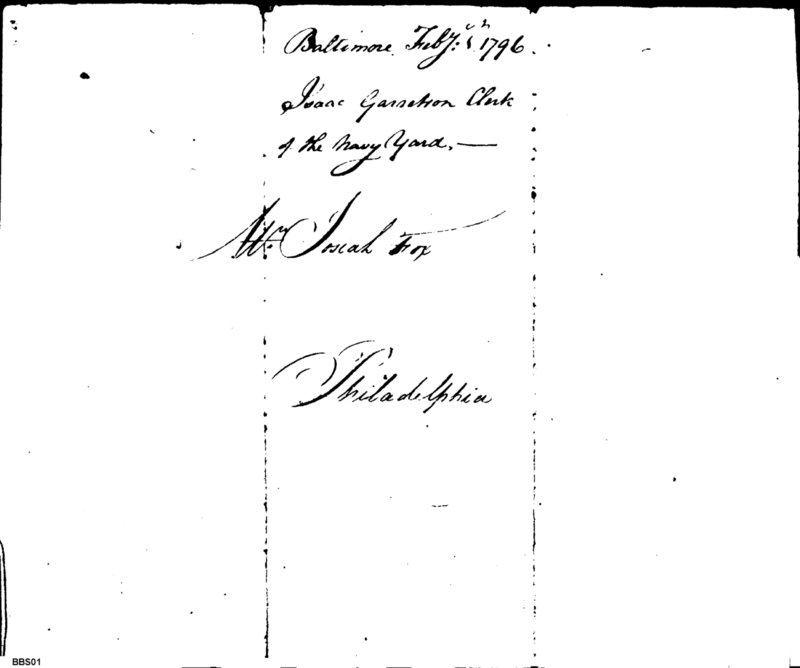 Baltimore Feby: 5th 1796.
Isaac Garretson Clerk
of the Navy Yard. —
Mr. Josiah Fox
Philadelphia
BBS01